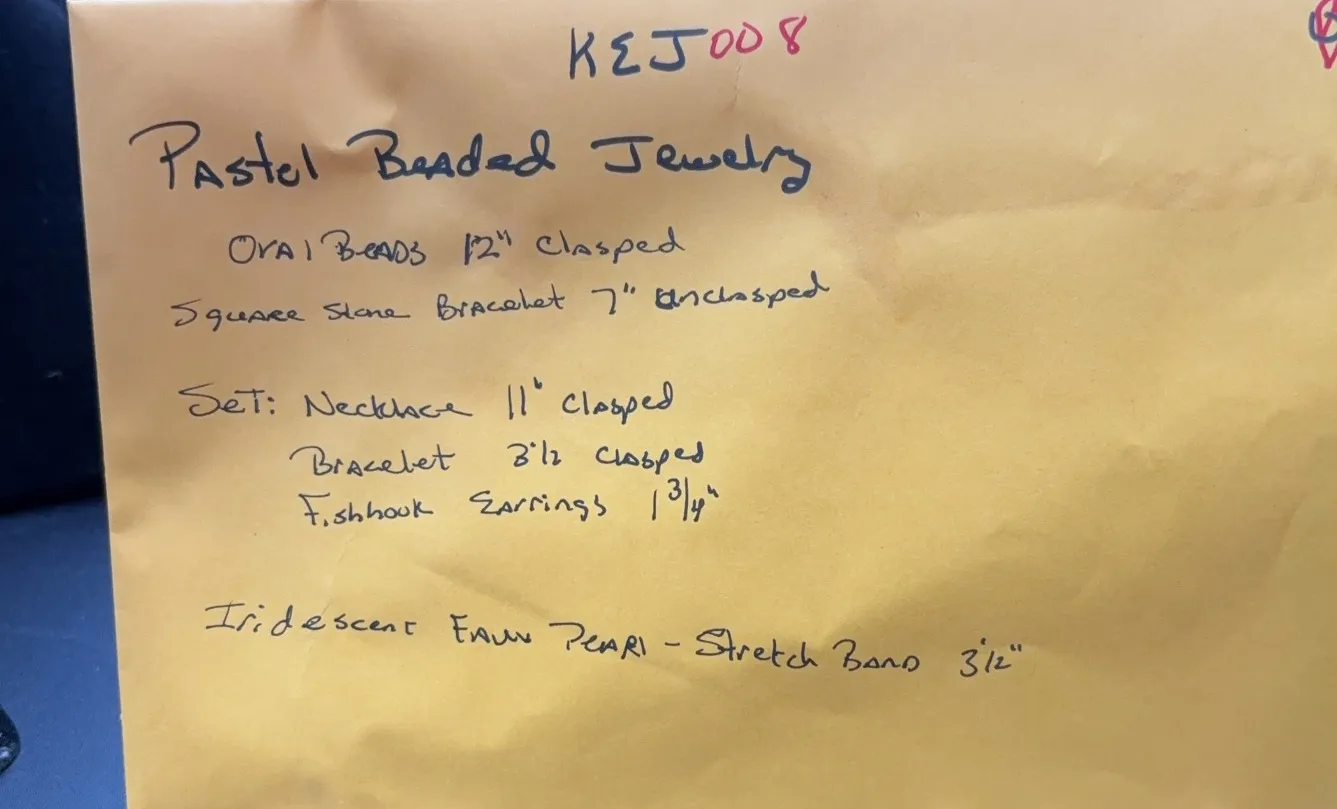 KEJ008
Pastel Beaded Jewelry
Oval Beads 12" Clasped
Square Stone Bracelet 7" Unclasped
Set: Necklace 11" Clasped
Bracelet 3 1/2 Clasped
Fishhook Earrings 1 3/4"
Iridescent Faux Pearl - Stretch Band 3 1/2"